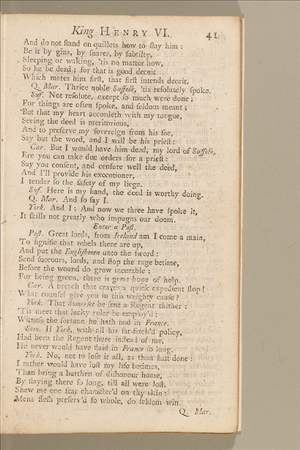 King HENRY VI. 41
And do not stand on quillets how to slay him:
Be it by gins, by snares, by subtilty,
Sleeping or waking, 'tis no matter how,
So he be dead; for that is good deceit
Which mates him first, that first intends deceit.
Q. Mar. Thrice noble Suffolk, 'tis resolutely spoke.
Suf. Not resolute, except so much were done;
For things are often spoke, and seldom meant:
But that my heart accordeth with my tongue,
Seeing the deed is meritorious,
And to preserve my sovereign from his foe,
Say but the word, and I will be his priest:
Car. But I would have him dead, my lord of Suffolk,
Ere you can take due orders for a priest:
Say you consent, and censure well the deed,
And I'll provide his executioner,
I tender so the safety of my liege.
Suf. Here is my hand, the deed is worthy doing.
Q. Mar. And so say I.
York. And I: And now we three have spoke it,
It skills not greatly who impugns our doom.
Enter a Post.
Post. Great lords, from Ireland am I come a main,
To signifie that rebels there are up,
And put the Englishmen unto the sword.
Send succours, lords, and stop the rage betime,
Before the wound do grow incurable:
For being green, there is great hope of help.
Car. A breach that craves a quick expedient stop!
What counsel give you in this weighty cause?
York. That Somerset be sent a Regent thither:
'Tis meet that lucky ruler be employ'd:
Witness the fortune he hath had in France.
Som. If York, with all his far-fetch'd policy,
Had been the Regent there instead of me,
He never would have staid in France so long.
York. No, not to lose it all, as thou hast done:
I rather would have lost my life betimes,
Than bring a burthen of dishonour home,
By staying there so long, till all were lost.
Shew me one scar character'd on thy skin:
Mens flesh preserv'd so whole, do seldom win.
Q. Mar.